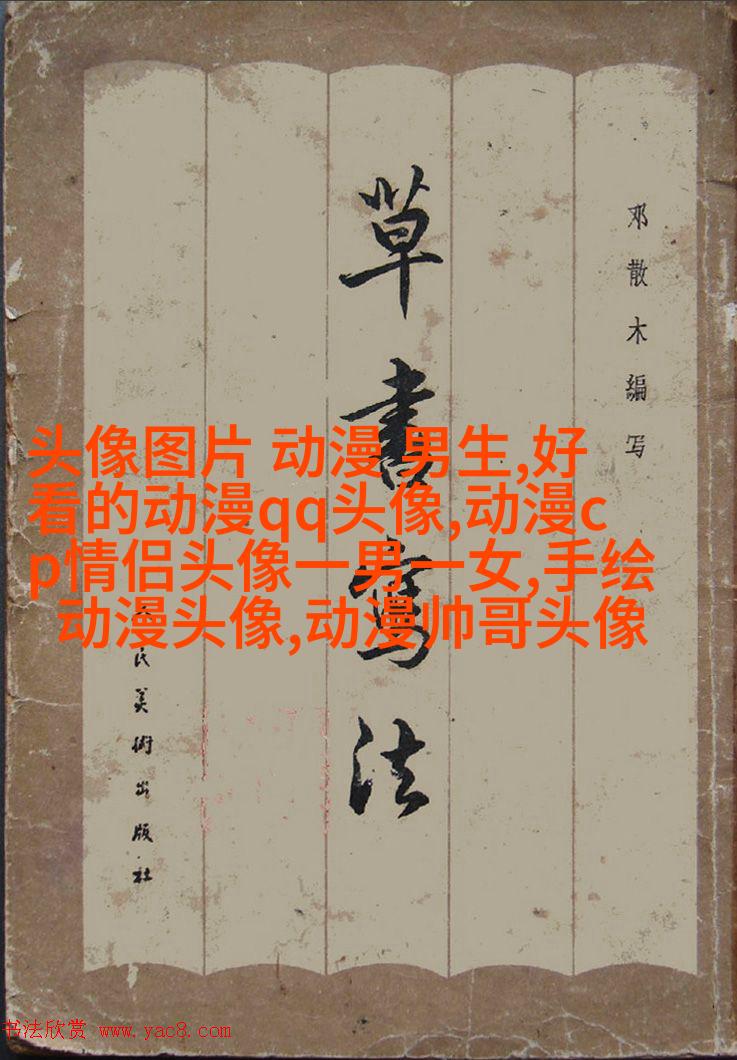 邓散木編写
草書寫法
民美術出版社
头像图片 动漫 男生,好
看的动漫qq头像,动漫c
p情侣头像一男一女,手绘
动漫头像,动漫帅哥头像
书法欣赏 www.yac8.com